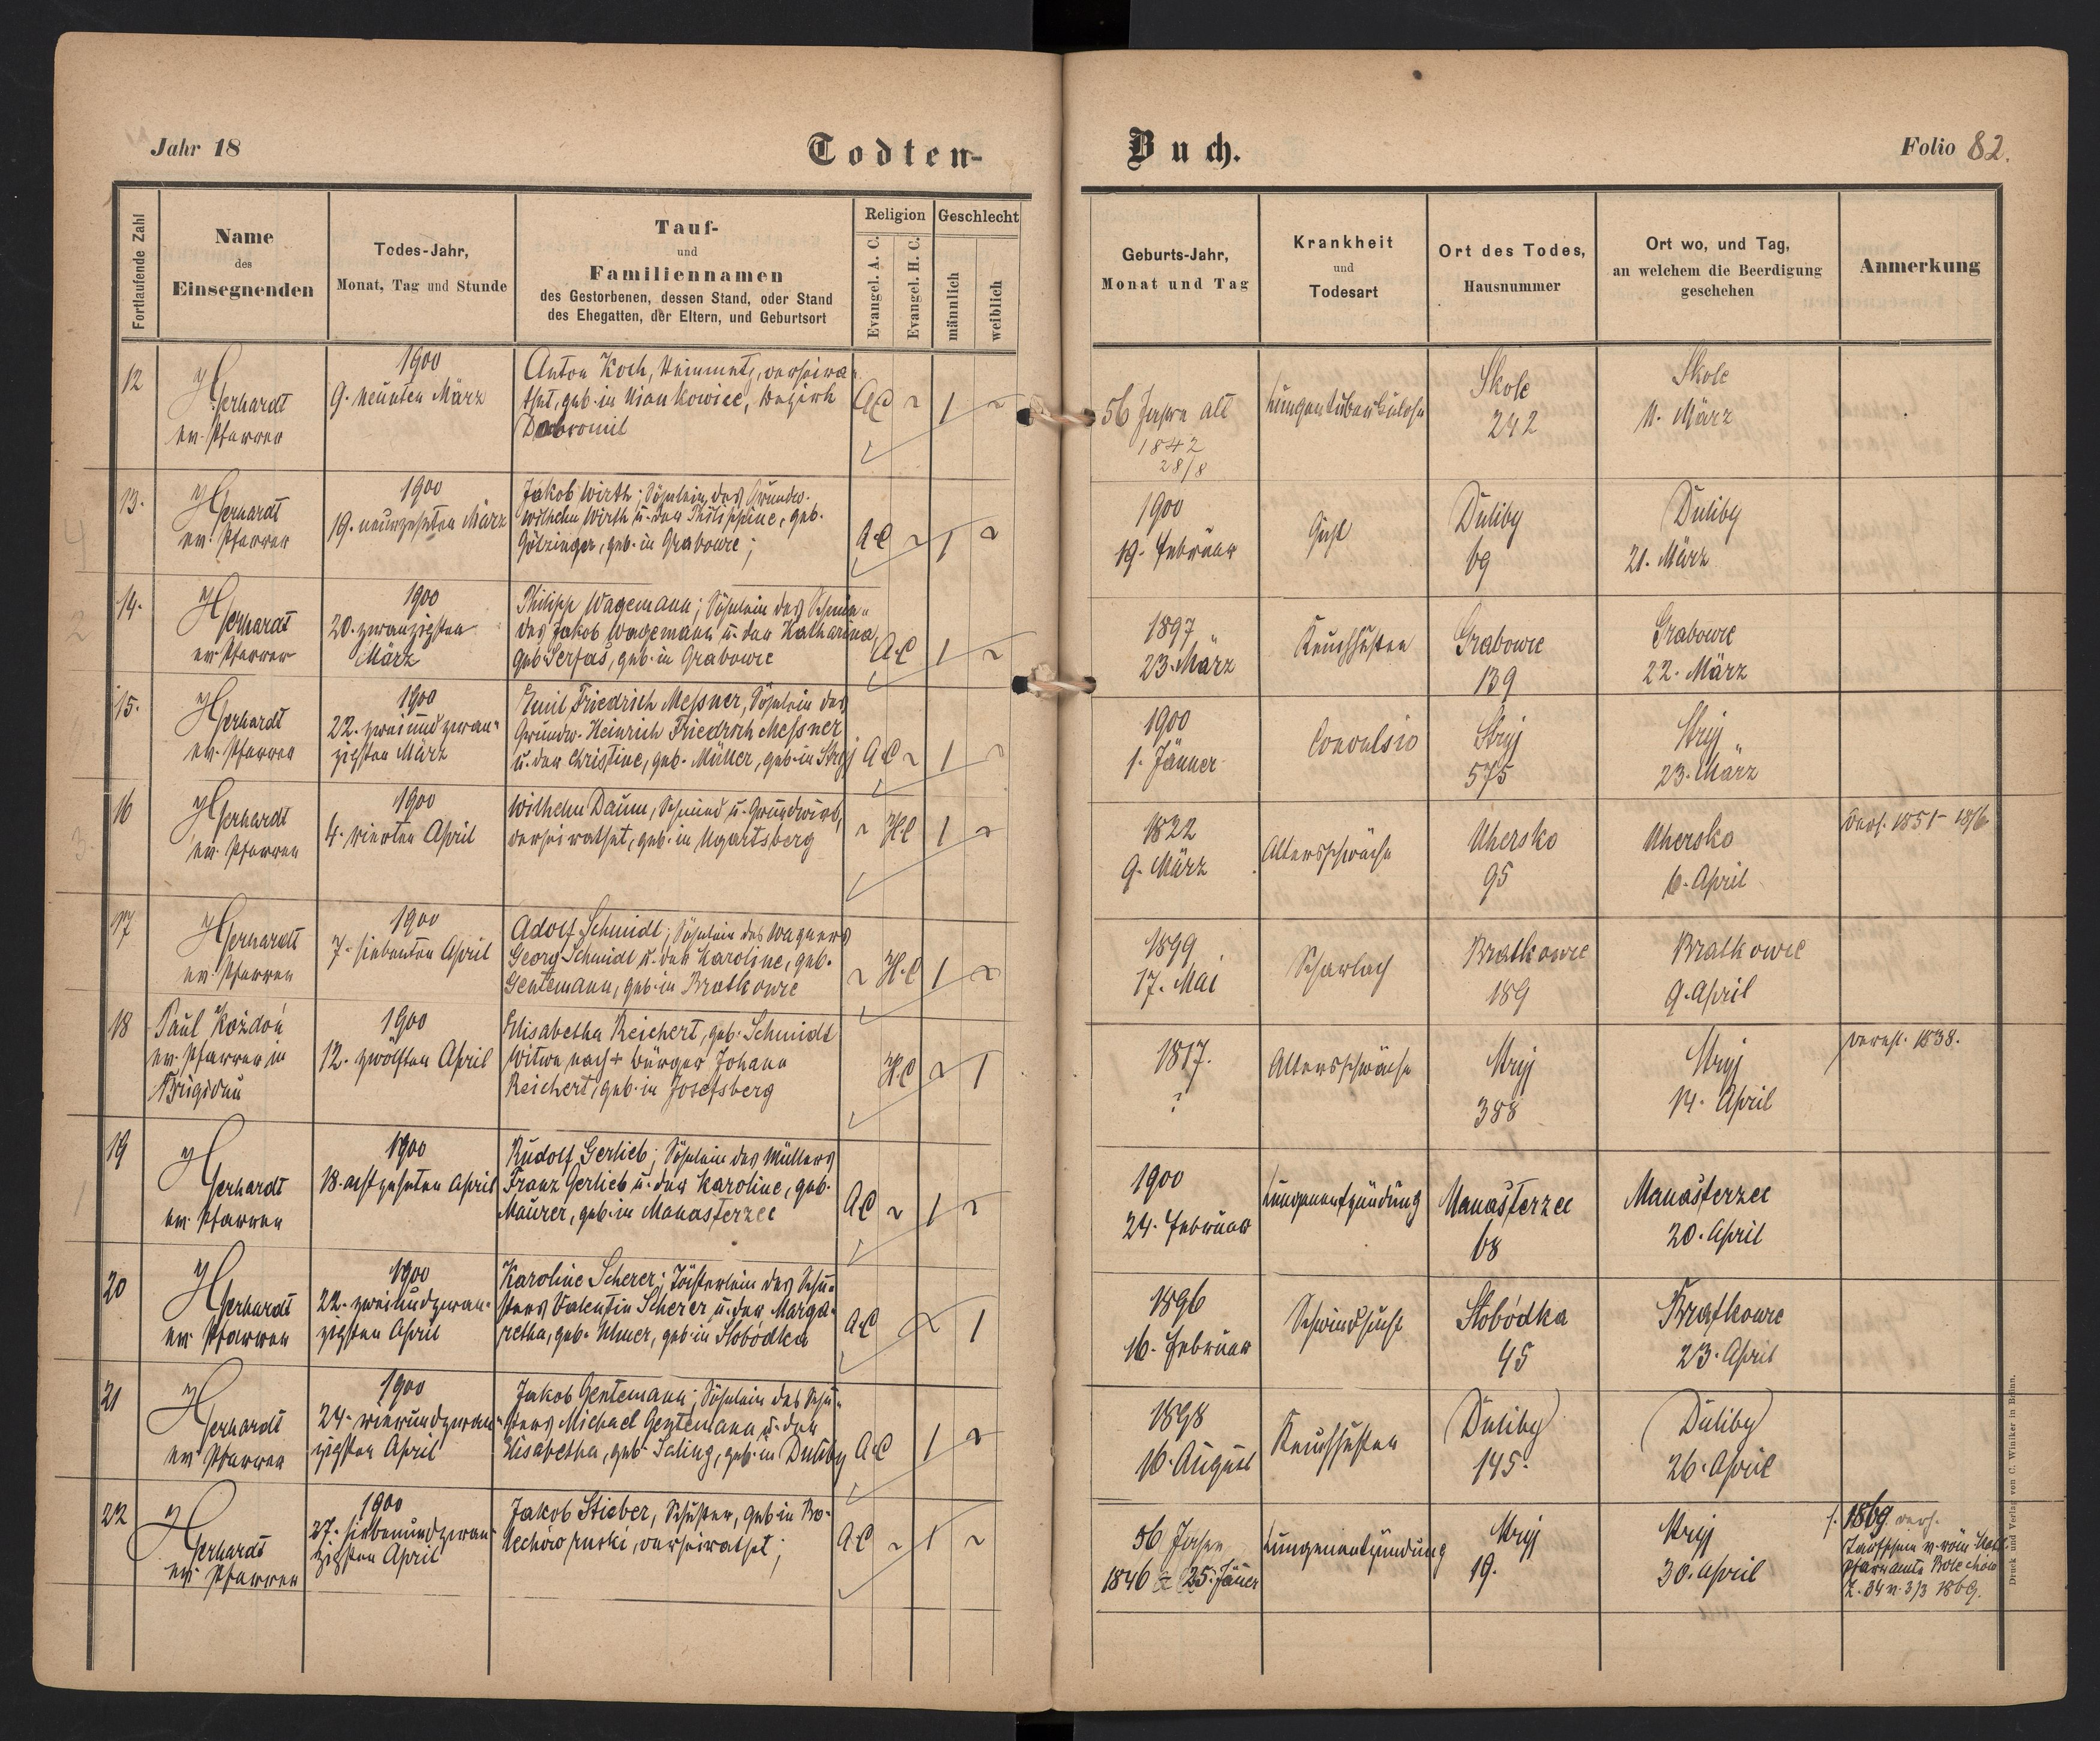 Jahr 18
Todten-
Buch.
Folio 82.
Fortlaufende Zahl
Name
des
Einsegnenden
Todes-Jahr,
Monat, Tag und Stunde
Tauf-
und
Familiennamen
des Gestorbenen, dessen Stand, oder Stand
des Ehegatten, der Eltern, und Geburtsort
Religion
Evangel. A. C.
Evangel. H. C.
Geschlecht
männlich
weiblich
Geburts-Jahr,
Monat und Tag
Krankheit
und
Todesart
Ort des Todes,
Hausnummer
Ort wo, und Tag,
an welchem die Beerdigung
geschehen
Anmerkung
12
Gerhardt
ev. Pfarrer
1900
9. neunten März
Anton Koch, verheira-
thet, geb. in Niankowice, Bezirk
Dobromil
A.C
1
56 Jahre alt
1842
28/8
Lungentuberkulose
Skole
242
Skole
11. März
13.
Gerhardt
ev. Pfarrer
1900
19. neunzehnten März
Jakob Wirth; Söhnlein des Grundw.
Wilhelm Wirth u. der Philippine, geb.
Götzinger, geb. in Grabowce;
A.C
1
1900
19. Februar
Gicht
Duliby
69
Duliby
21. März
14.
Gerhardt
ev. Pfarrer
1900
20. zwanzigsten
März
Philipp Wagemann; Söhnlein des Schmie-
des Jakob Wagemann u. der Katharina,
geb. Serfas, geb. in Grabowce
A.C
1
1897
23. März
Keuchhusten
Grabowce
139
Grabowce
22. März
15.
Gerhardt
ev. Pfarrer
1900
22. zweiundzwan-
zigsten März
Emil Friedrich Messner, Söhnlein des
Grundw. Heinrich Friedrich Messner
u. der Christine, geb. Müller, geb. in Stryj
A.C
1
1900
1. Jänner
Convulsio
Stryj
575
Stryj
23. März
16
Gerhardt
ev. Pfarrer
1900
4. vierten April
Wilhelm Daum, Schmied u. Grundwirt,
verheirathet, geb. in Ugartsberg
H.C
1
1822
9. März
Altersschwäche
Uhersko
95
Uhersko
6. April
17
Gerhardt
ev. Pfarrer
1900
7. siebenten April
Adolf Schmidt; Söhnlein des Wagners
Georg Schmidt u. der Karoline, geb.
Gentemann, geb. in Bratkowce
H.C
1
1899
17. Mai
Scharlach
Bratkowce
189
Bratkowce
9. April
18
Paul Kożdoń
ev. Pfarrer in
Brigidau
1900
12. zwölften April
Elisabetha Reichert, geb. Schmidt
Witwe nach + Bürger Johann
Reichert, geb. in Josefsberg
H.C
1
1817.
?
Altersschwäche
Stryj
388
Stryj
14. April
verehl. 1838.
19
Gerhardt
ev. Pfarrer
1900
18. achtzehnten April
Rudolf Gerlieb; Söhnlein des Müllers
Franz Gerlieb u. der Karoline, geb.
Maurer, geb. in Manasterzec
A.C
1
1900
24. Februar
Lungenentzündung
Manasterzec
68
Manasterzec
20. April
20
Gerhardt
ev. Pfarrer
1900
22. zweiundzwan-
zigsten April
Karoline Scherer; Töchterlein des Schu-
sters Valentin Scherer u. der Marga-
retha, geb. Ulmer, geb. in Słobódka
A.C
1
1896
16. Februar
Schwindsucht
Słobódka
45
Bratkowce
23. April
21
Gerhardt
ev. Pfarrer
1900
24. vierundzwan-
zigsten April
Jakob Gentemann; Söhnlein des Schu-
sters Michael Gentemann u. der
Elisabetha, geb. Saling, geb. in Duliby
A.C
1
1898
16. August
Keuchhusten
Duliby
145.
Duliby
26. April
22
Gerhardt
ev. Pfarrer
1900
27. siebenundzwan-
zigsten April
Jakob Stieber, Schuster, geb. in Bo-
lechów ruski, verheirathet;
A.C
1
56 Jahre
1846 25. Jäner
Lungenentzündung
Stryj
19.
Stryj
30. April
1869
Taufschein v. röm. kath.
Pfarramte Bolechów
Z. 34 v. 3/3 1869.
Druck und Verlag von C. Winiker in Brünn.